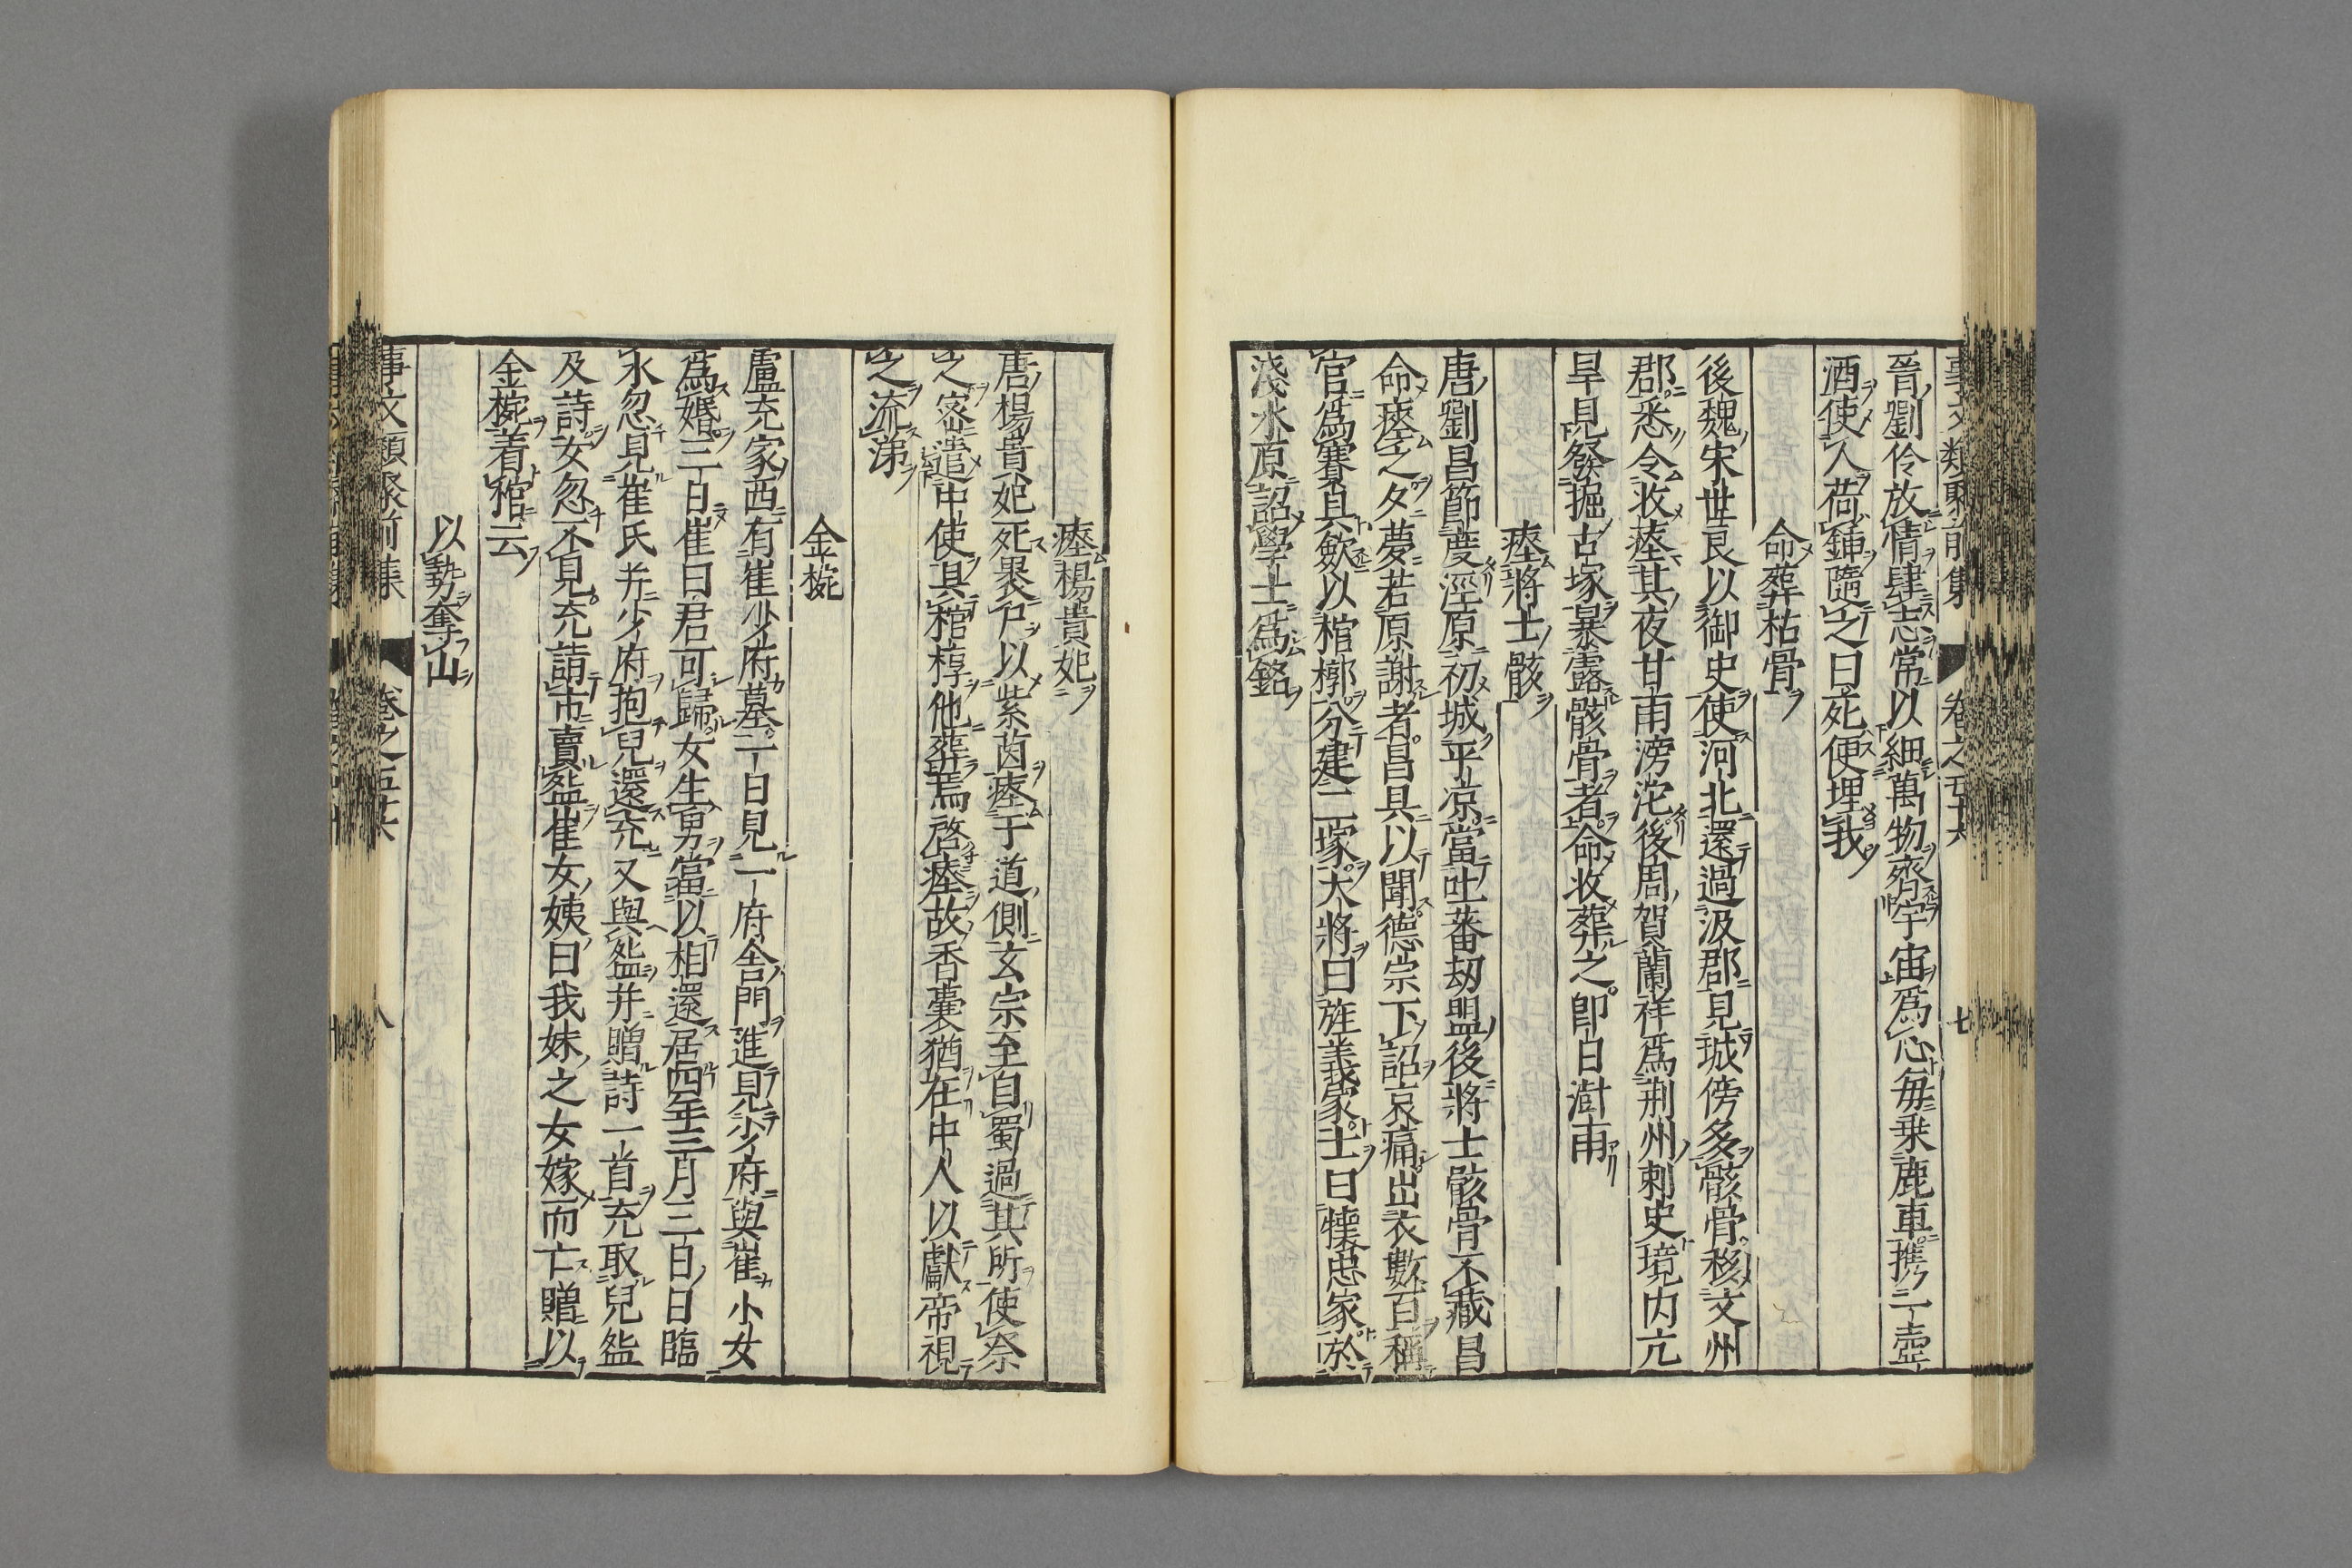 事文類聚前集 卷之五十六 七
晉劉伶放情肆志常以細萬物齊宇宙爲心每乗鹿車攜一壺
酒使人荷鍤隨之曰死便埋我
命葬枯骨
後魏宋世良以御史使河北還過汲郡見城傍多骸骨移文州
郡悉令收瘞其夜甘雨滂沱後周賀蘭祥爲荆州刺史境内亢
旱見發掘古塚暴露骸骨者命收葬之即日澍雨
瘞將士骸
唐劉昌節度涇原初城平凉當吐蕃刼盟後將士骸骨不藏昌
命瘞之夕夢若原謝者昌具以聞德宗下詔哀痛出衣數百稱
官爲賽具斂以棺槨分建二塚大將曰旌義冢士曰懷忠冢於
淺水原詔學士爲銘
瘞楊貴妃
唐楊貴妃死褁尸以紫茵瘞于道側玄宗至自蜀過其所使祭
之密遣中使具棺椁他葬焉啓瘞故香囊猶在中人以獻帝視
之流涕
金椀
盧充家西有崔少府墓一日見一府舎門進見少府與崔小女
爲婚三日崔曰君可歸女生男當以相還居四年三月三日臨
水忽見崔氏并少府抱兒還充又與盌并贈詩一首充取兒盌
及詩女忽不見充詣市賣盌崔女姨曰我妹之女嫁而亡贈以
金椀着棺云
以勢奪山
事文類聚前集 卷之五十六 八